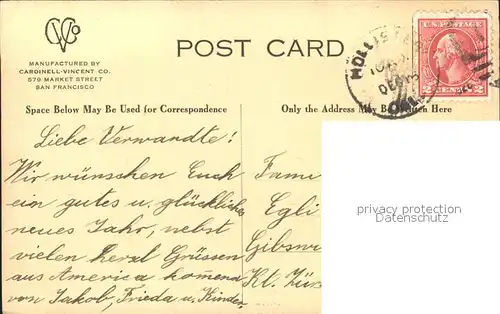 CVCo
POST CARD
MANUFACTURED BY
CARDINELL-VINCENT CO.
579 MARKET STREET
SAN FRANCISCO
U.S. POSTAGE
2 CENTS 2
Space Below May Be Used for Correspondence
Only the Address May Be Written Here
Liebe Verwandte!
Wir wünschen Euch
ein gutes u. glückliches
neues Jahr, nebst
vielen herzl Grüssen
aus America kom̄end
von Jakob, Frieda u. Kinder.
Fami
Egli
Gibsw
Kt. Zür
privacy protection
Datenschutz